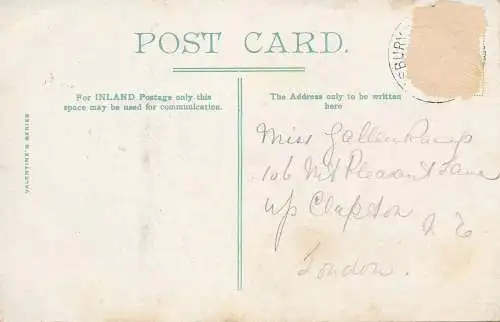 POST CARD.
For INLAND Postage only this
space may be used for communication.
The Address only to be written
here
VALENTINE'S SERIES
BURY
Miss Gallenkamp
106 Mt Pleasant Lane
up Clapton
N E
London.